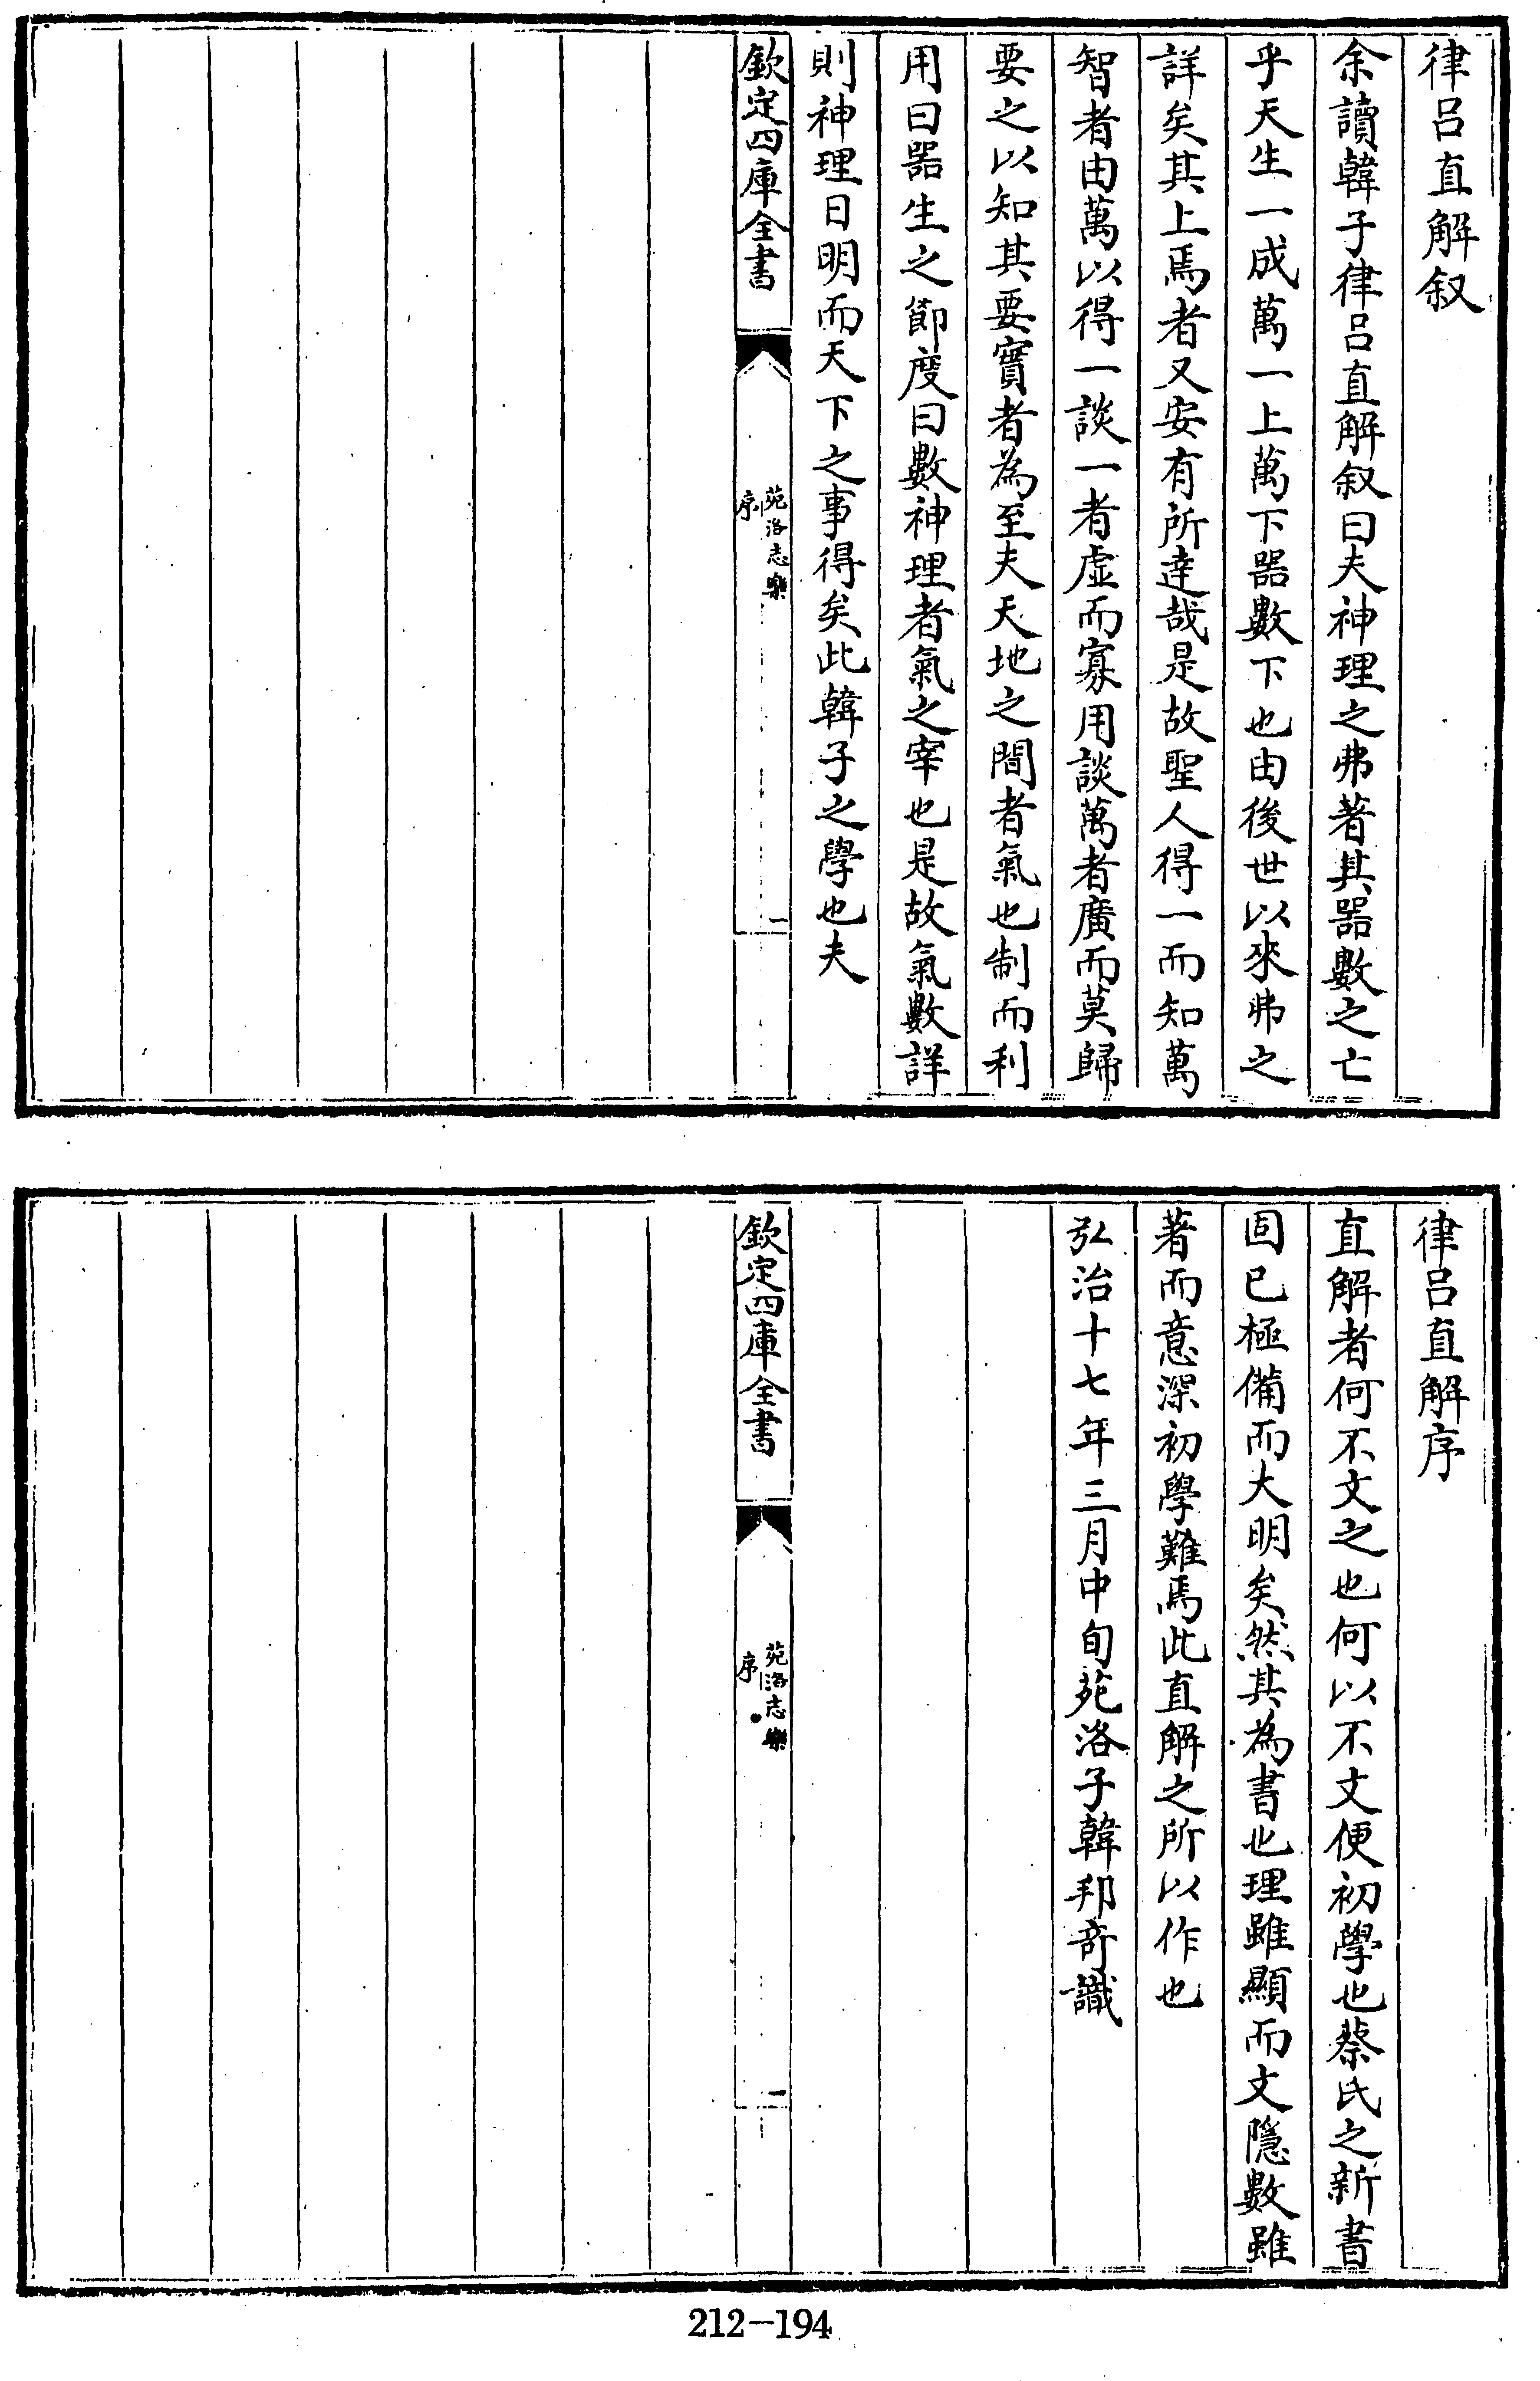 律呂直解叙
余讀韓子律呂直解叙曰夫神理之弗著其器數之亡
乎天生一成萬一上萬下器數下也由後世以來弗之
詳矣其上焉者又安有所達哉是故聖人得一而知萬
智者由萬以得一談一者虛而寡用談萬者廣而莫歸
要之以知其要實者為至夫天地之間者氣也制而利
用曰器生之節度曰數神理者氣之宰也是故氣數詳
則神理日明而天下之事得矣此韓子之學也夫
欽定四庫全書
苑洛志樂
序
一
律呂直解序
直解者何不文之也何以不文便初學也蔡氏之新書
固已極備而大明矣然其為書也理雖顯而文隱數雖
著而意深初學難焉此直解之所以作也
弘治十七年三月中旬苑洛子韓邦奇識
欽定四庫全書
苑洛志樂
序
一
212-194